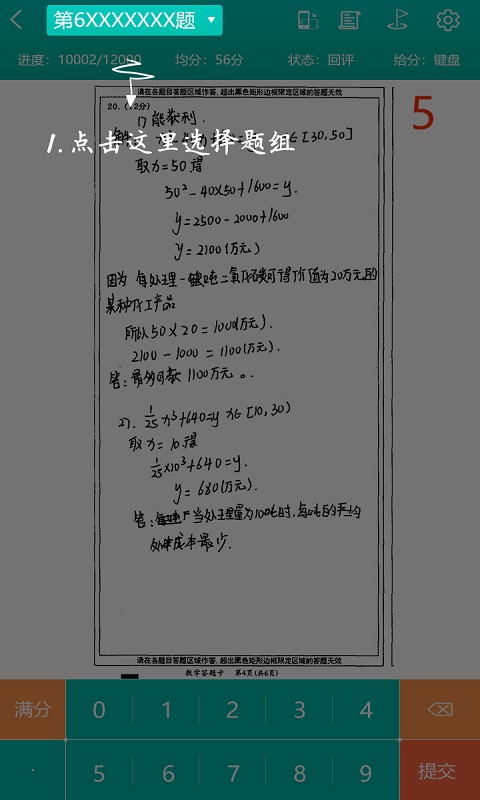 第6XXXXXXX题
进度：10002/12000 均分：56分 状态：回评 给分：键盘
请在各题目答题区域作答，超出黑色矩形边框限定区域的答题无效
20.(12分)
1.点击这里选择题组
5
门能获利.
x∈[30,50]
取x=50得
50²-40×50+1600=y.
y=2500-2000+1600
y=2100(万元)
因为 每处理一吨二氧化碳可得价值为20万元的
某种化工产品
所以50×20=1000(万元).
2100-1000=1100(万元).
答:最多可获1100万元。
27. 1/25 x³+640=y x∈[10,30)
取x=10得
1/25×10³+640=y.
y=680(万元).
答: 当处理量为10吨时,每吨的平均
处理成本最少.
请在各题目答题区域作答，超出黑色矩形边框限定区域的答题无效
数学答题卡 第4页(共6页)
满分 0 1 2 3 4
· 5 6 7 8 9 提交